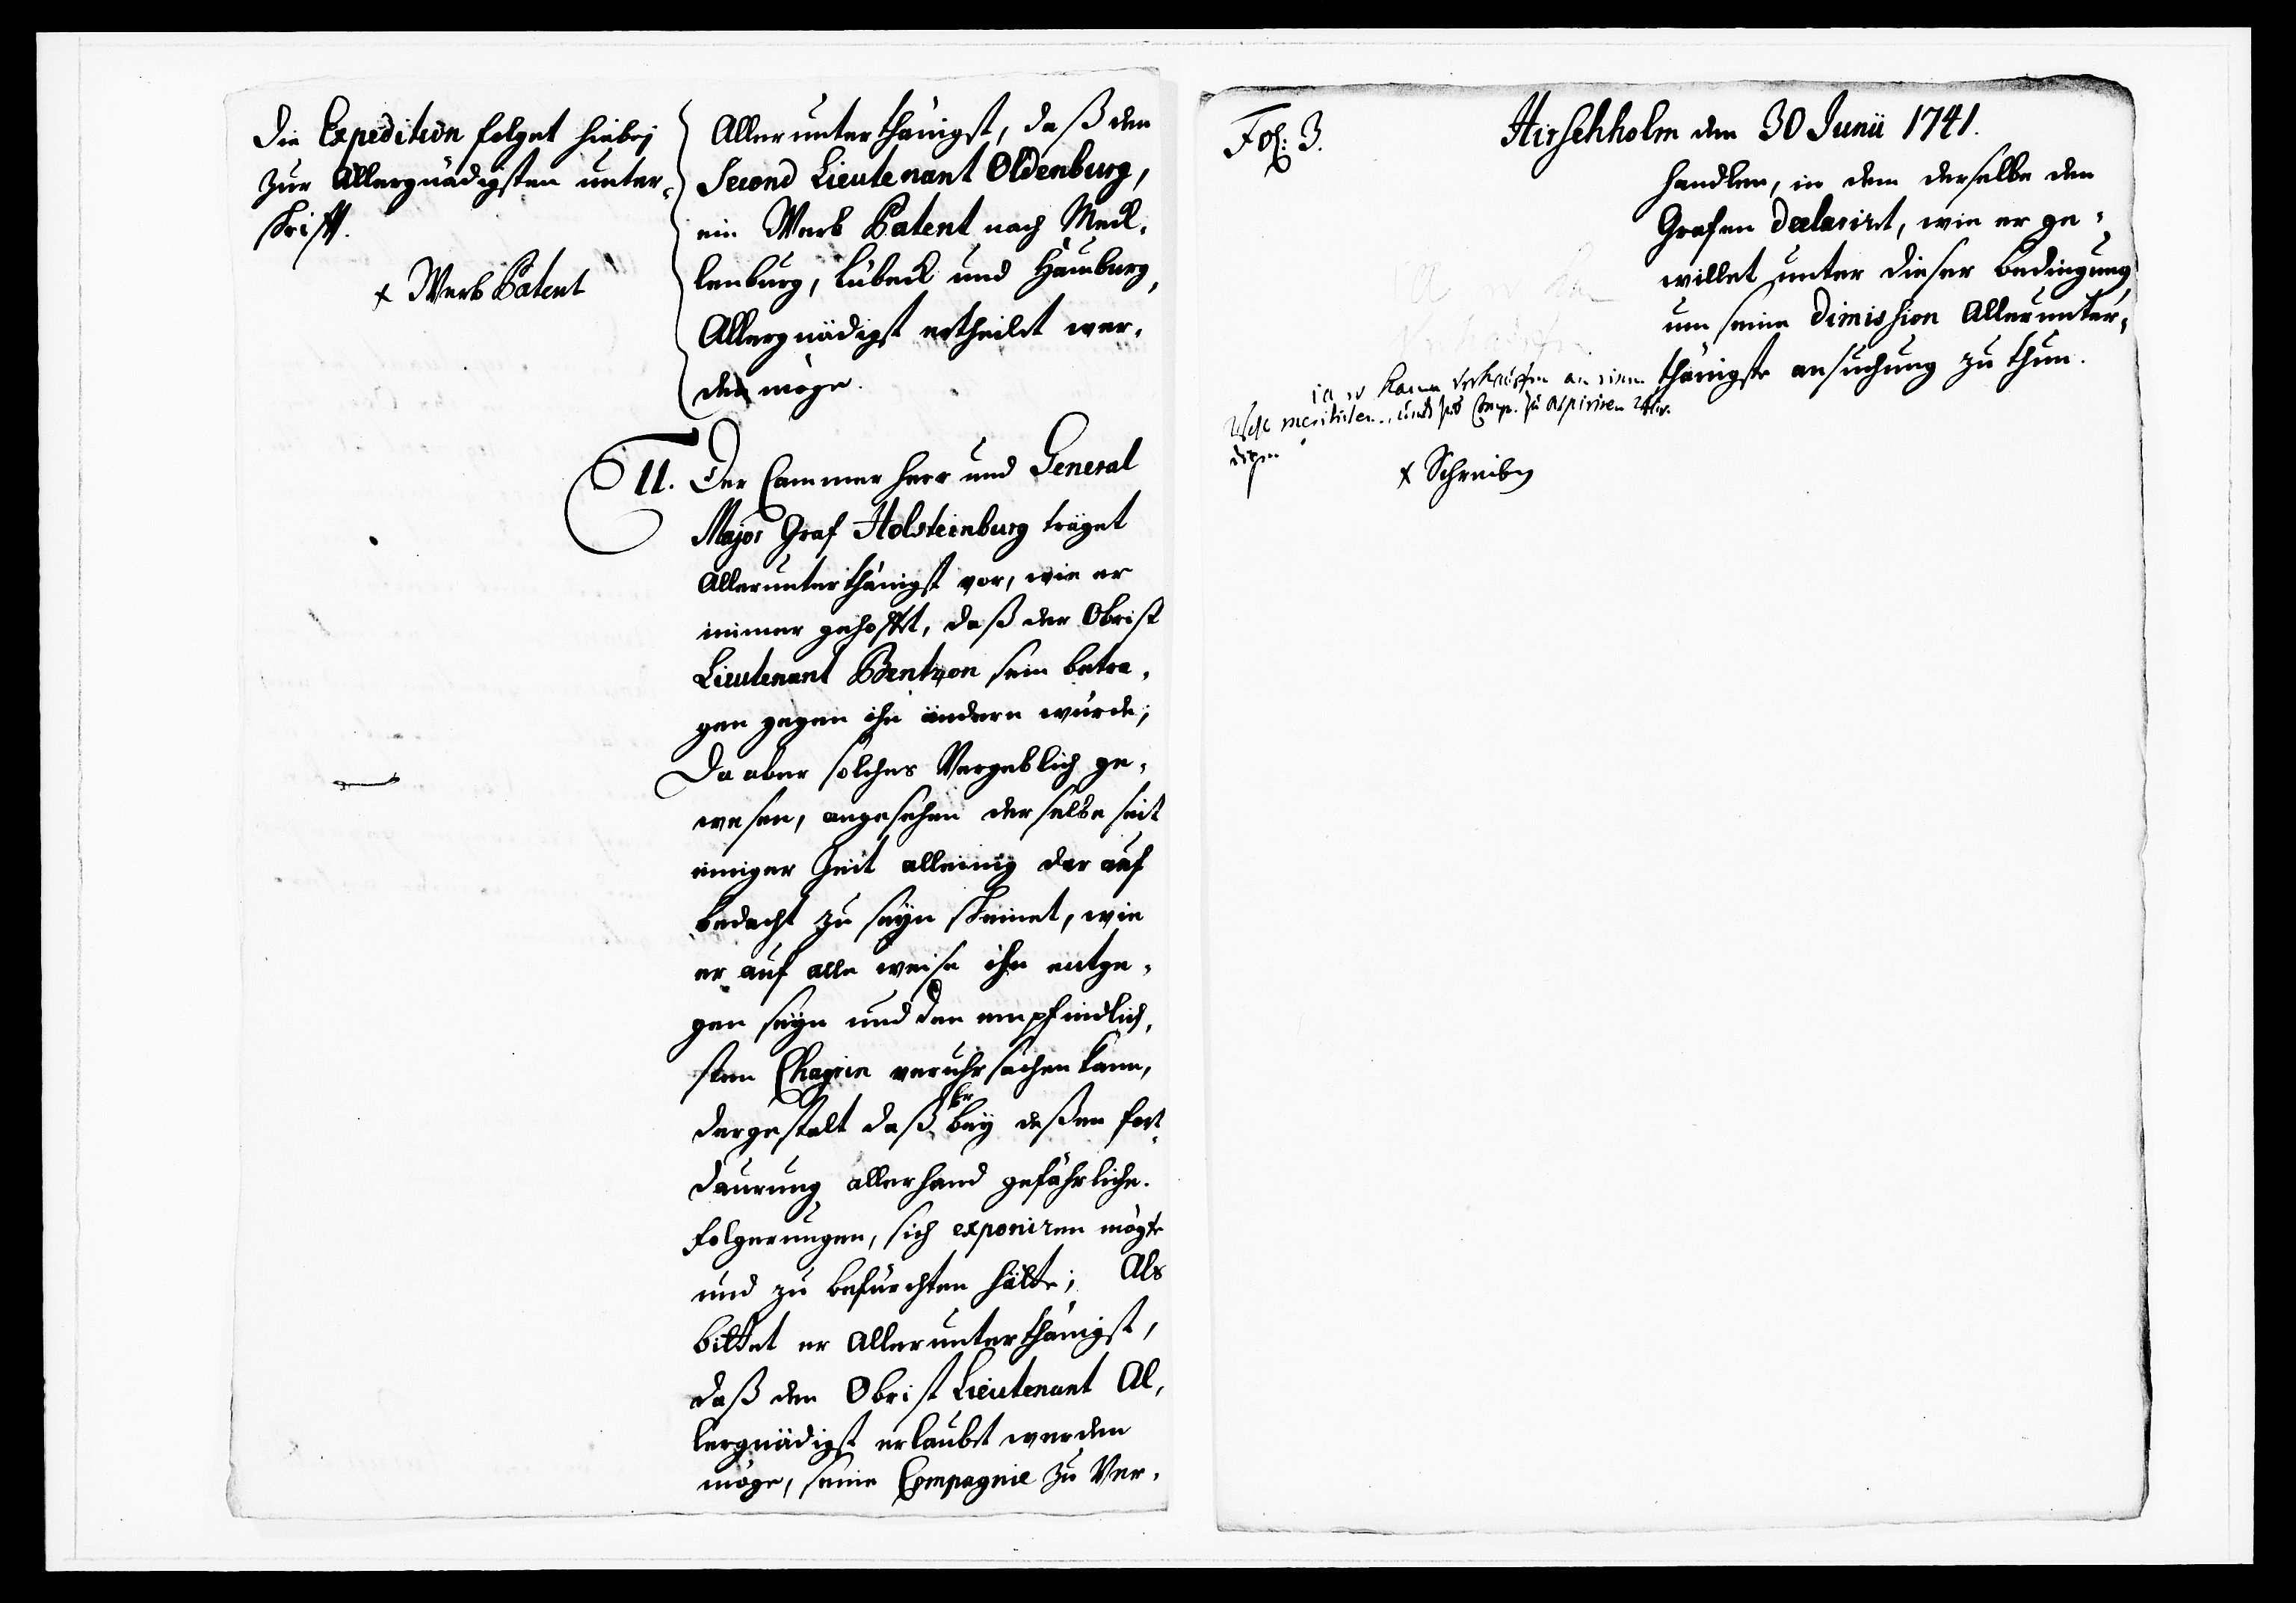 Die Expedition folget hiebey
zur Allergnädigsten unter-
schrifft.
x Werb Patent
Allerunterthänigst, daß den
Second Lieutenant Oldenburg,
ein Werb Patent nach Meck-
lenburg, Lübeck und Hamburg,
Allergnädigst ertheilet wer-
den möge.
11. Der Cammer Herr und General
Major Graf Holsteinburg träget
Allerunterthänigst vor, wie er
immer gehofft, daß der Obrist
Lieutenant Bentzon sein betra-
gen gegen ihn ändern würde;
Da aber solches Vergeblich ge-
wesen, angesehen derselbe seit
einiger Zeit alleinig dar auf
bedacht zu seyn scheinet, wie
er auf alle weise ihn entge-
gen seyn und den empfindlich-
sten Chagrin veruhrsachen kann,
dergestalt daß er bey deßen fort-
daurung allerhand gefährliche
folgerungen, sich exponiren mögte
und zu befürchten hätte; Als
bittet er Allerunterthänigst,
daß den Obrist Lieutenant Al-
lergnädigst erlaubt werden
möge, seine Compagnie zu Ver-
Fol: 3.
Hirschholm den 30 Junii 1741.
handlen, in dem derselbe den
Grafen declarirt, wie er ge-
willet unter dieser bedingung,
um seine Dimission Allerunter-
thänigste ansuchung zu thun.
ia er kann verkauffen an einen
meritirten, und zu der Comp. zu aspiriren
x Schreiben